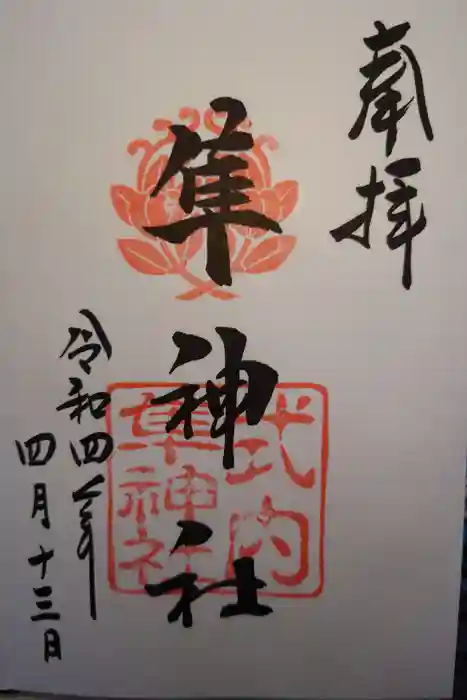 奉拝
隼神社
式内
隼神社
令和四年
四月十三日